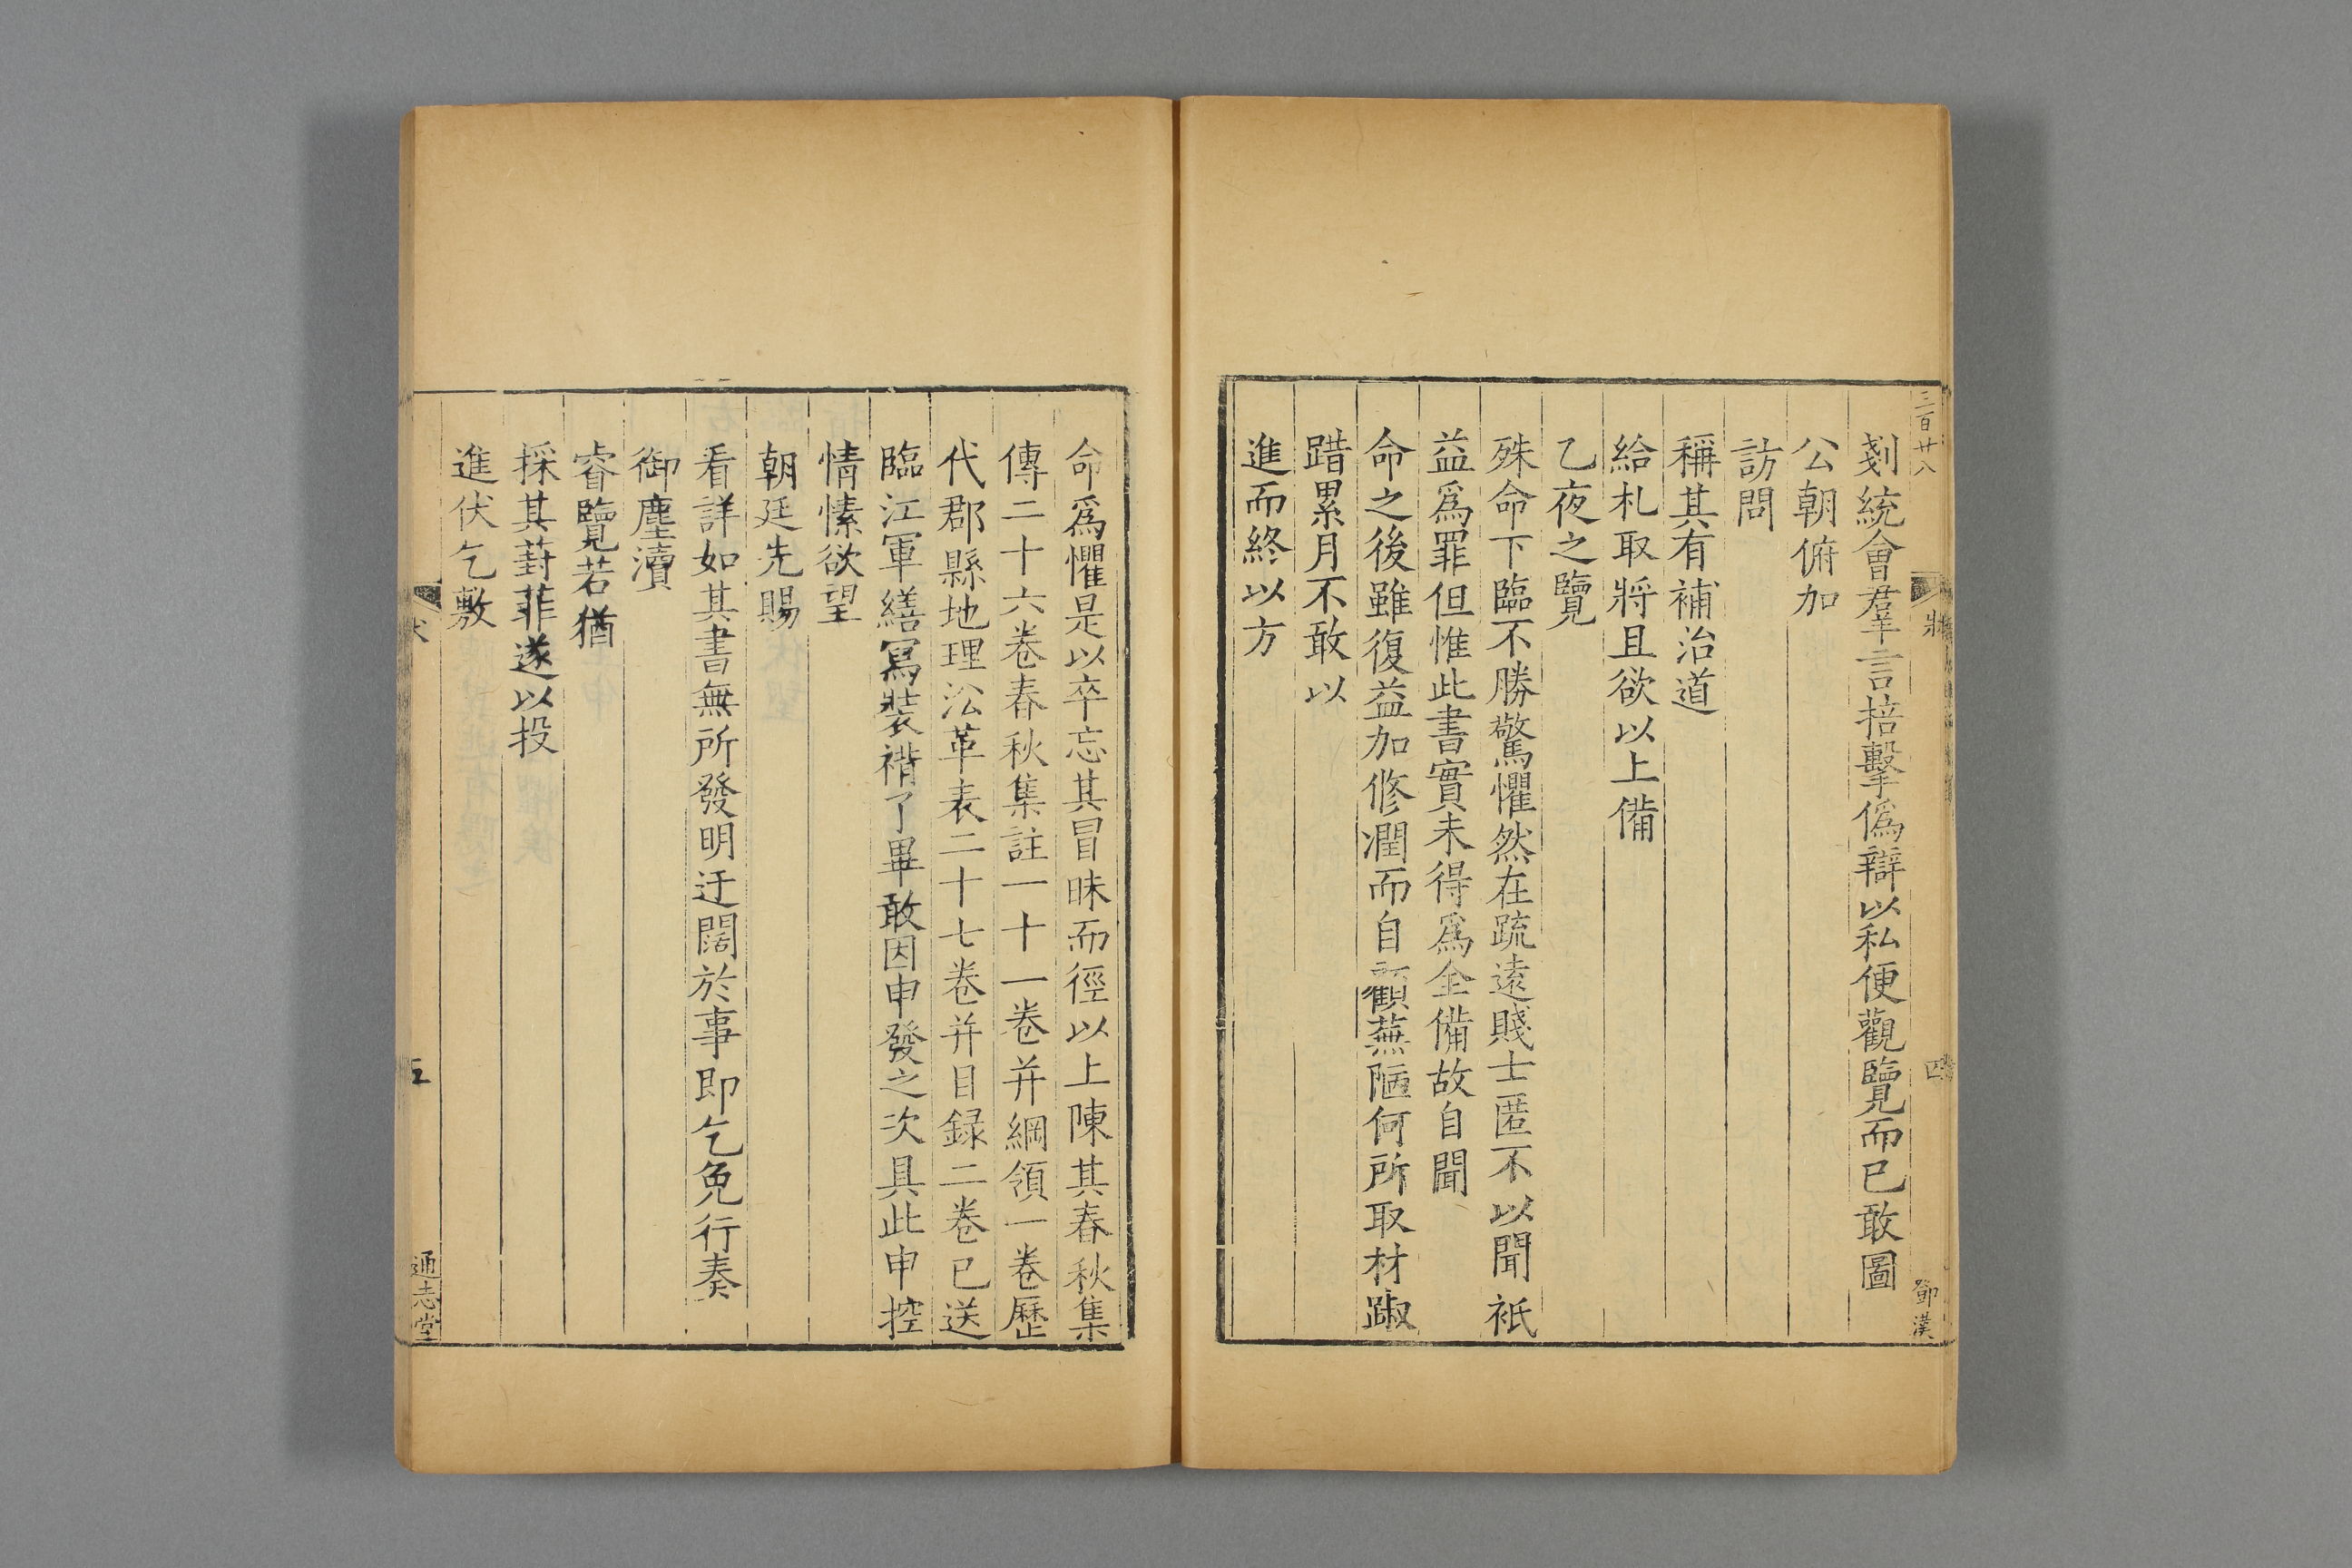 三百廿八
剗統會羣言掊擊僞辯以私便觀覽而已敢圖
公朝俯加
訪問
稱其有補治道
給札取將且欲以上備
乙夜之覽
殊命下臨不勝驚懼然在疏遠賤士匿不以聞祇
益爲罪但惟此書實未得爲全備故自聞
命之後雖復益加修潤而自顧蕪陋何所取材踧
踖累月不敢以
進而終以方
四
鄧漢
命爲懼是以卒忘其冒昧而徑以上陳其春秋集
傳二十六卷春秋集註一十一卷并綱領一卷歷
代郡縣地理沿革表二十七卷并目録二卷已送
臨江軍繕寫裝褙了畢敢因申發之次具此申控
情愫欲望
朝廷先賜
看詳如其書無所發明迂闊於事即乞免行奏
御塵瀆
睿覽若猶
採其葑菲遂以投
進伏乞敷
五
通志堂